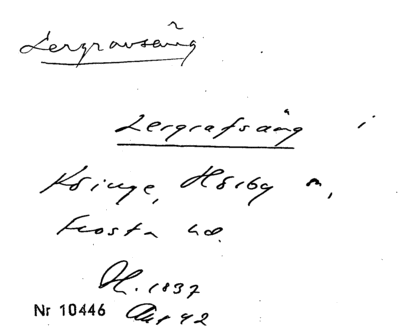 Lergravsäng
Lergrafsäng i
Köinge, Hörby sn,
Frosta hd.
H. 1837
Akt 42
Nr 10446